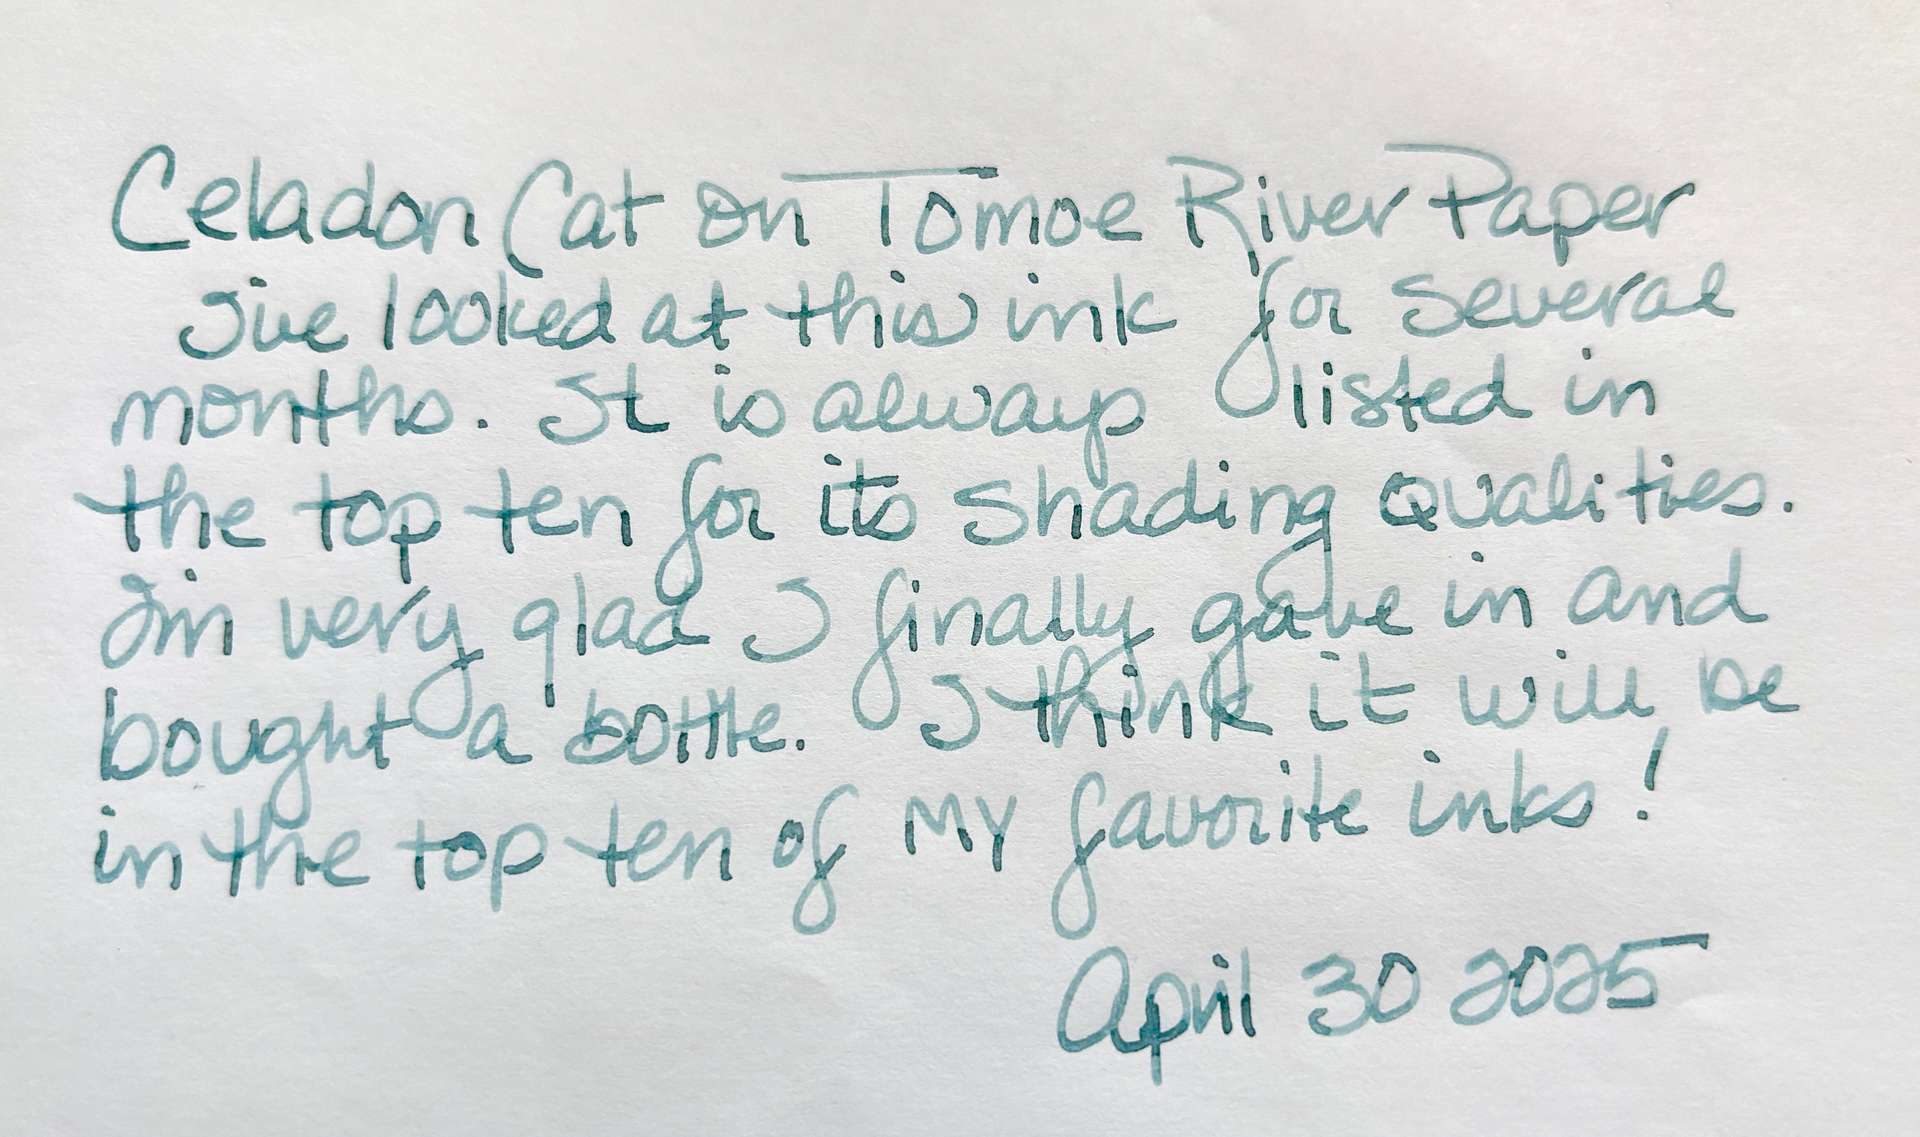 Celadon Cat on Tomoe River Paper
I've looked at this ink for several
months. It is always listed in
the top ten for its shading qualities.
I'm very glad I finally gave in and
bought a bottle. I think it will be
in the top ten of my favorite inks!
April 30 2025